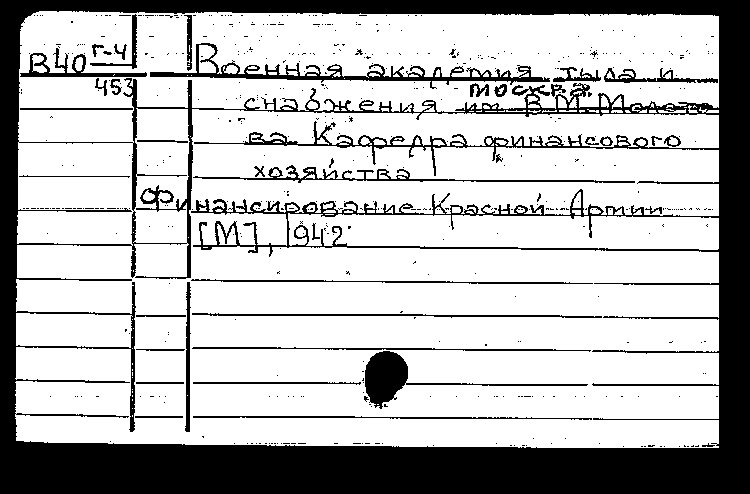 В40 г-4
453
Военная академия тыла и
Москва.
снабжения им В.М. Молото
ва Кафедра финансового
хозяйства
Финансирование Красной Армии
[М], 1942